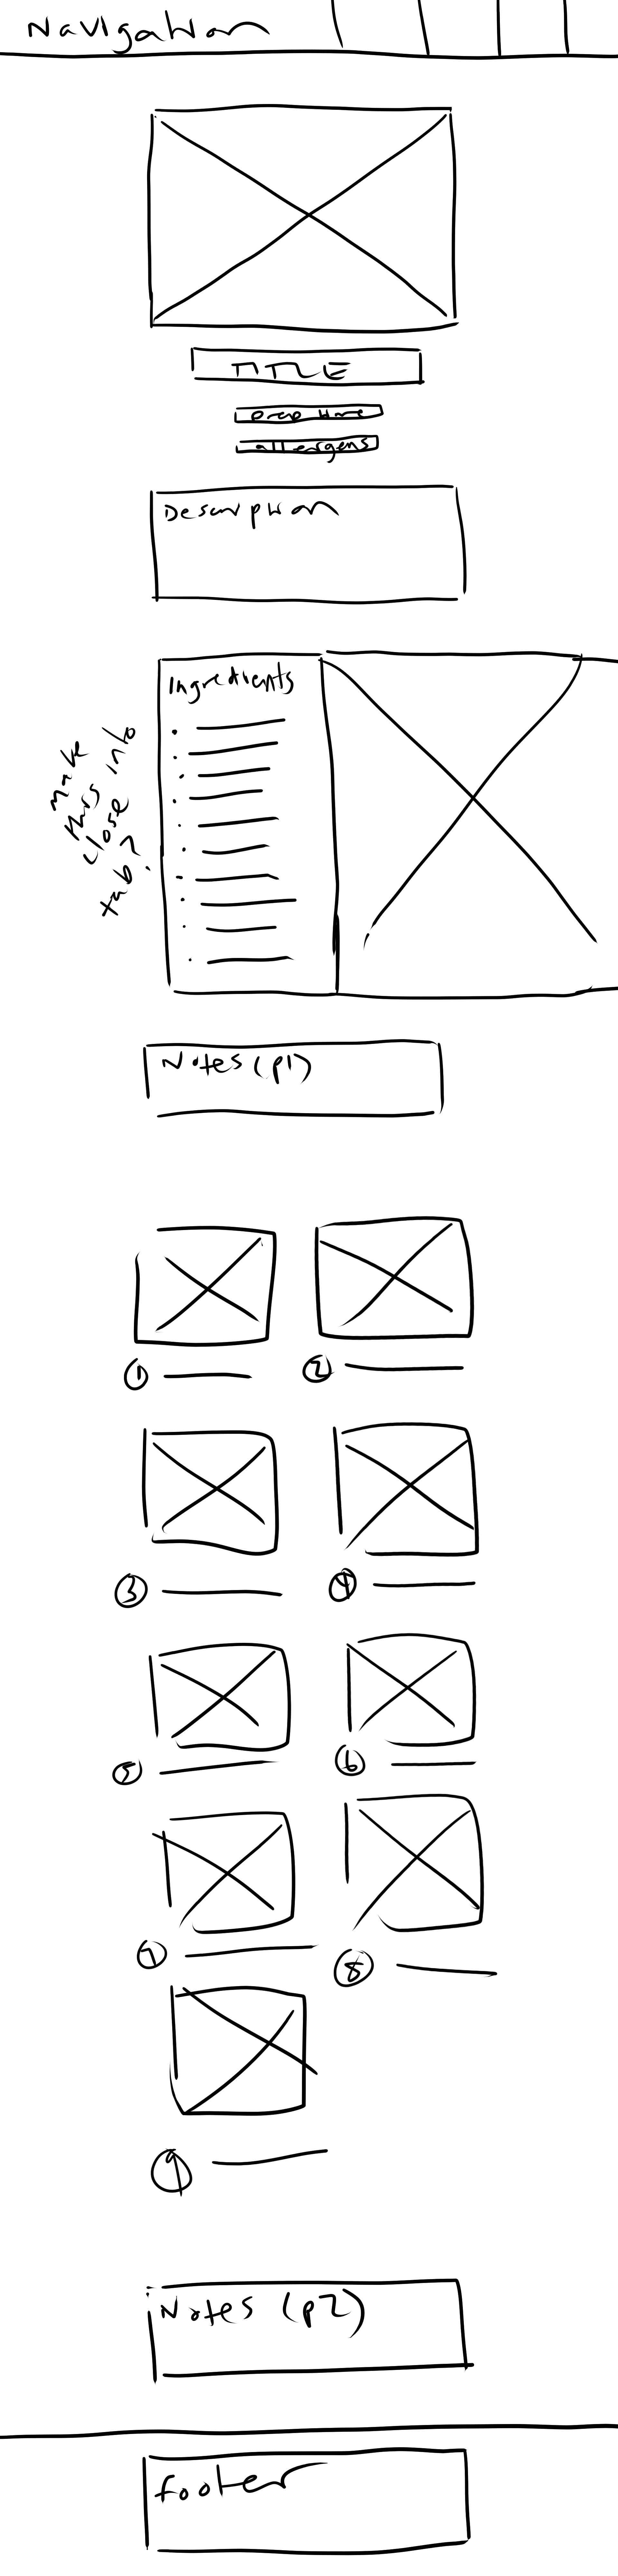 Navigation
TITLE
prep time
allergens
Description
Ingredients
make
this into
close
tab?
Notes (p1)
1
2
3
4
5
6
7
8
9
Notes (p2)
footer